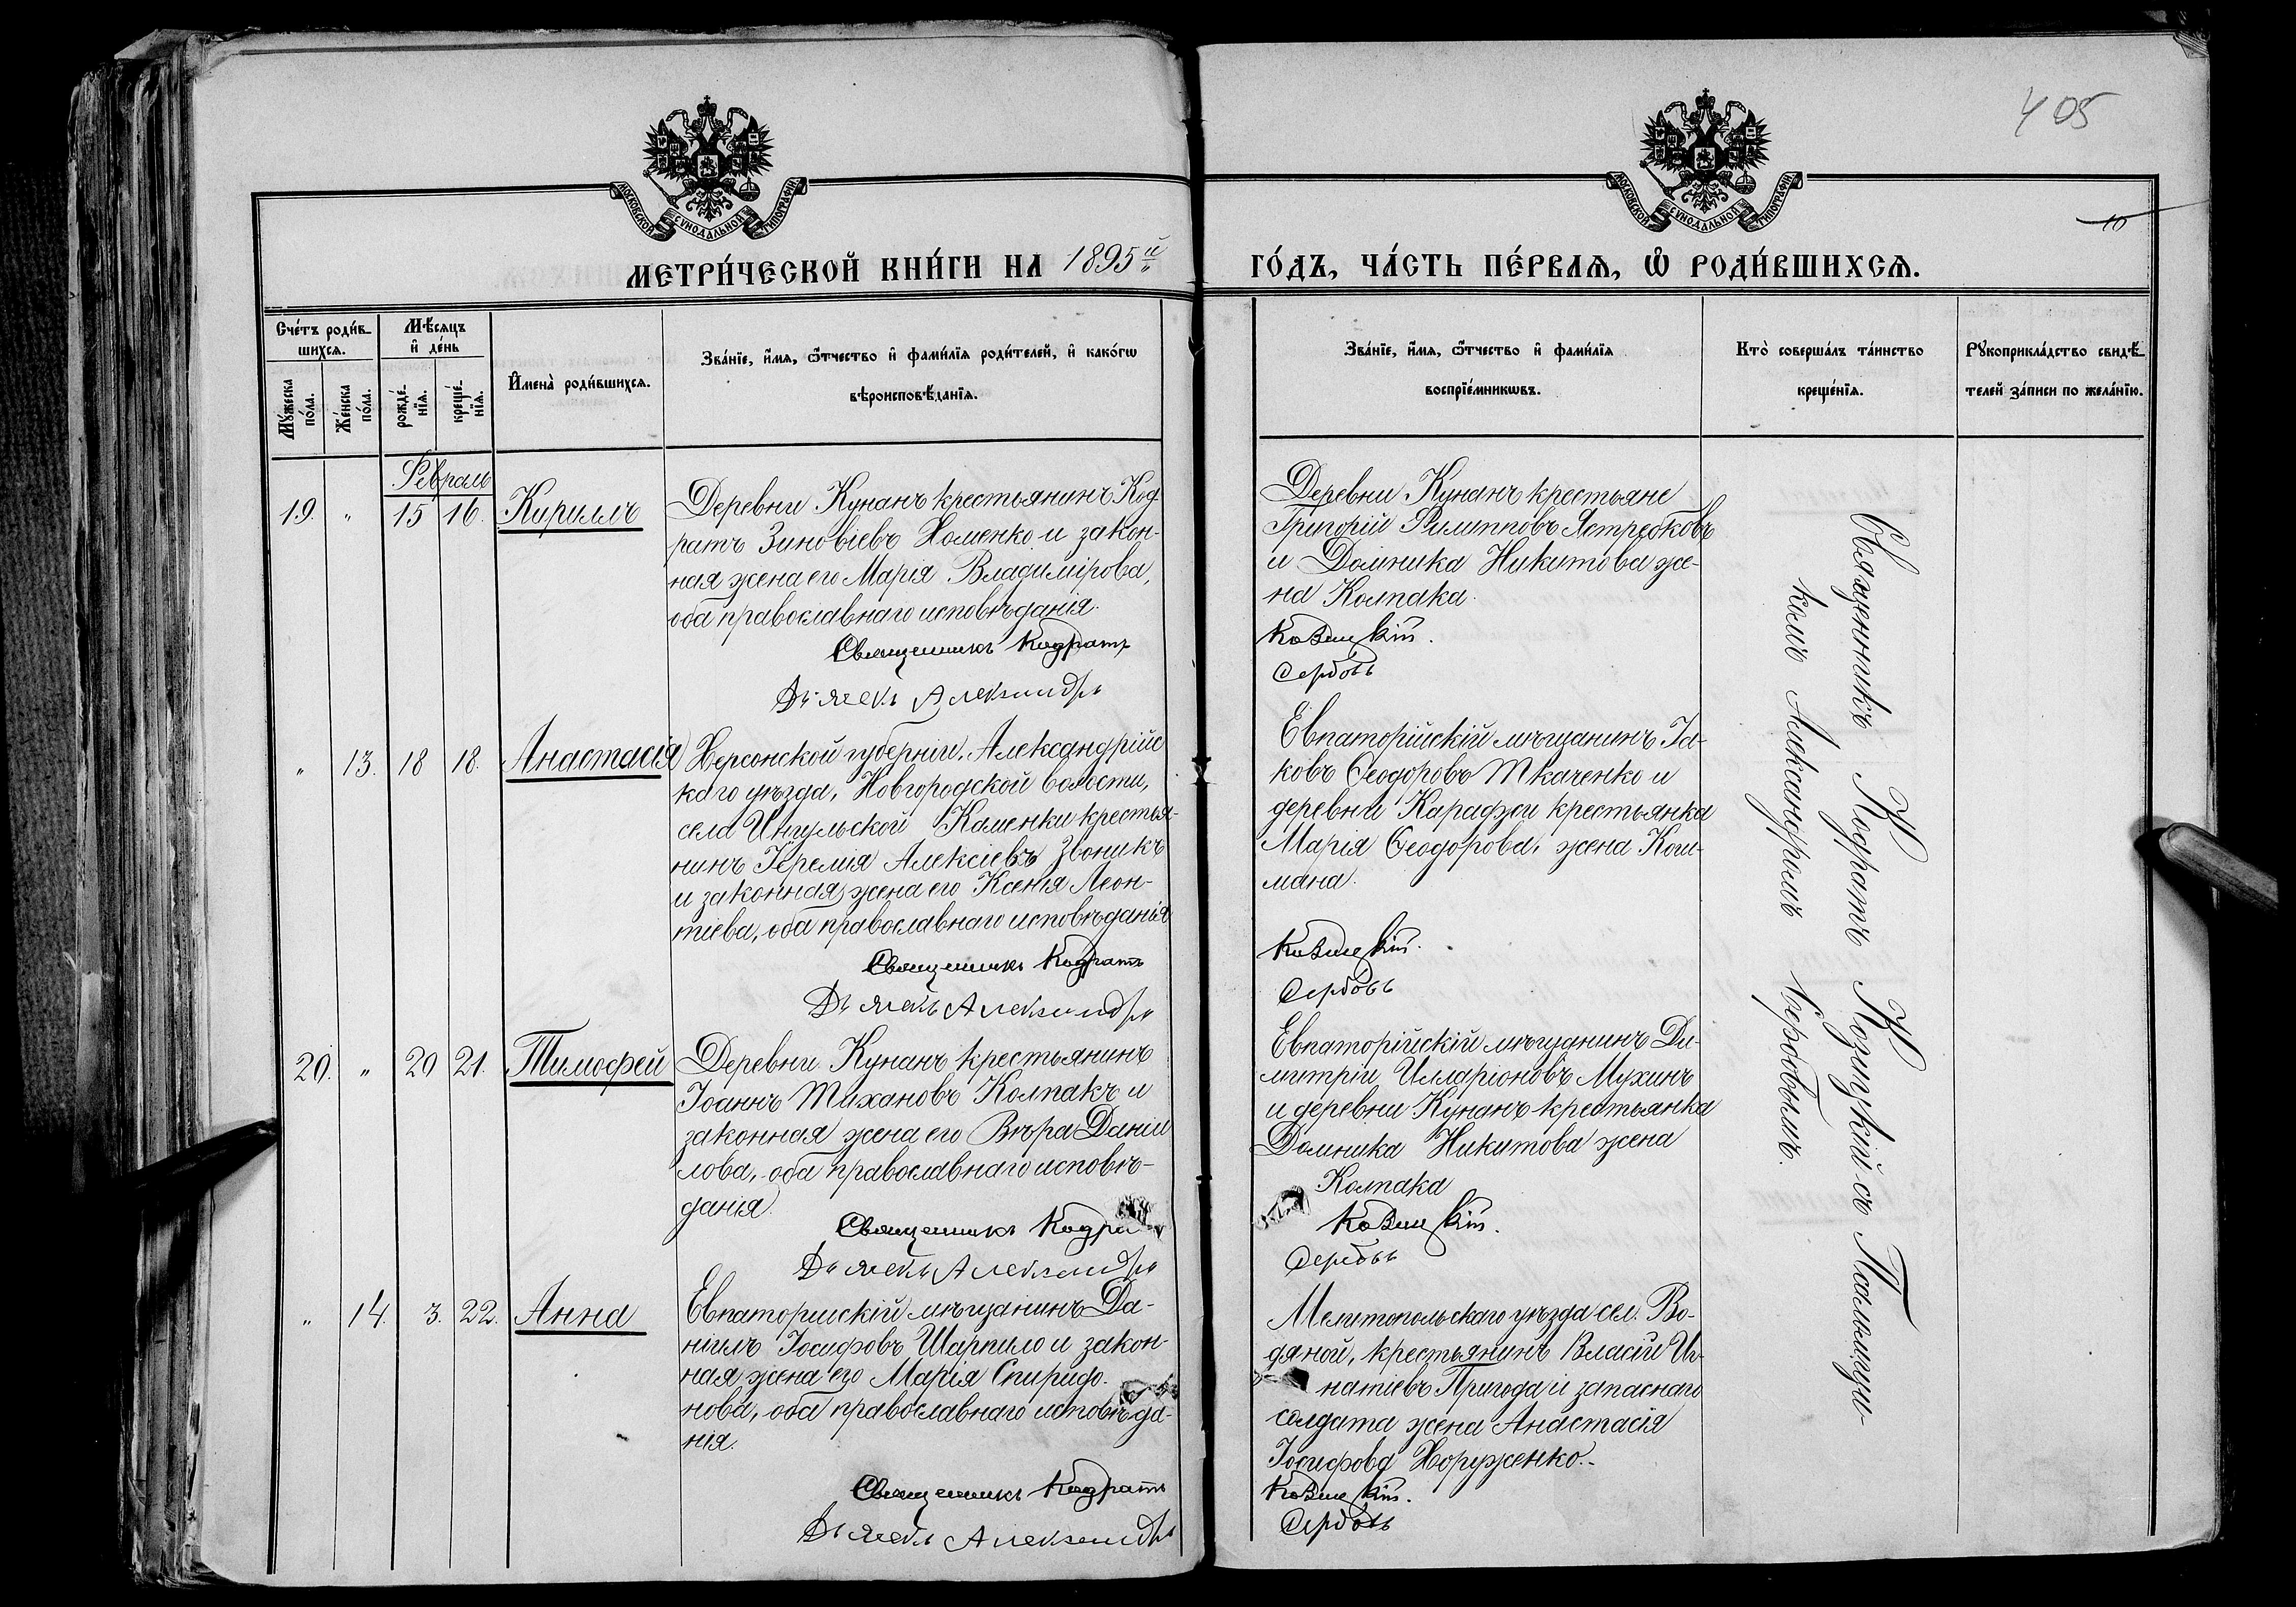 405
10
МОСКОВСКОЙ СѴНОДАЛЬНОЙ ТИПОГРАФІИ.
МОСКОВСКОЙ СѴНОДАЛЬНОЙ ТИПОГРАФІИ.
МЕТРИ́ЧЕСКОЙ КНИ́ГИ НА 1895й
ГО́ДЪ, ЧА́СТЬ ПЕ́РВАѦ, Ѡ҆ РОДИ́ВШИХСѦ.
Сче́тъ роди́в-
шихсѧ.
Мꙋ́жеска по́ла.
Же́нска по́ла.
Мѣ́сѧцъ
и҆ де́нь
рожде́-нїѧ.
креще́-нїѧ.
И҆мена̀ роди́вшихсѧ.
Зва́нїе, и҆́мѧ, ѻ҆́тчество и҆ фами́лїѧ роди́телей, и҆ како́гѡ
вѣроисповѣ́данїѧ.
Зва́нїе, и҆́мѧ, ѻ҆́тчество и҆ фами́лїѧ
воспрїе́мникѡвъ.
Кто̀ соверша́лъ та́инство
креще́нїѧ.
Рꙋкоприкла́дство свидѣ́-
телей за́писи по жела́нїю.
Февраль
19. " 15 16. Кириллъ
Деревни Кунанъ крестьянинъ Код
ратъ Зиновіевъ Хоменко и закон-
ная жена его Марія Владимірова,
оба православнаго исповѣданія.
Священникъ Кодратъ
Дьячекъ Александръ
Деревни Кунанъ крестьяне
Григорій Филипповъ Ястребковъ
и Домника Никитова же-
на Колпака.
Козицкій.
Сербовъ
" 13. 18 18. Анастасія
Херсонской губерніи, Александрійс
каго уѣзда, Новгородской волости,
села Ингульской Каменки крестья-
нинъ Іеремія Алексіевъ Звоникъ
и законная жена его Ксенія Леон-
тіева, оба православнаго исповѣданія
Священникъ Кодратъ
Дьячекъ Александръ
Евпаторійскій мѣщанинъ Іа-
ковъ Ѳеодоровъ Ткаченко и
деревни Караджи крестьянка
Марія Ѳеодорова, жена Кош-
мана.
Козицкій.
Сербовъ
20. " 20 21. Тимофей
Деревни Кунанъ крестьянинъ
Іоаннъ Тихановъ Колпакъ и
законная жена его Вѣра Даніи
лова, оба православнаго исповѣ-
данія.
Священникъ Кодра
Дьячекъ Александръ
Евпаторійскій мѣщанинъ Ди-
митрій Илларіоновъ Мухинъ
и деревни Кунанъ крестьянка
Домника Никитова жена
Колпака
Козицкій.
Сербовъ
" 14. 3. 22. Анна
Евпаторискій мѣщанинъ Да-
ніилъ Іосифовъ Шарпило и закон-
ная жена его Марія Спиридо-
нова, оба православнаго исповѣда-
нія.
Священникъ Кодратъ
Дьячекъ Александръ
Мелитопольскаго уѣзда сел. Во-
дяной, крестьянинъ Власій Иг-
натіевъ Пригода и запаснаго
солдата жена Анастасія
Іосифова Хоруженко.-
Козицкій.
Сербовъ
Священникъ Кодратъ Козицкій съ Псаломщи-
комъ Александромъ Сербовымъ.